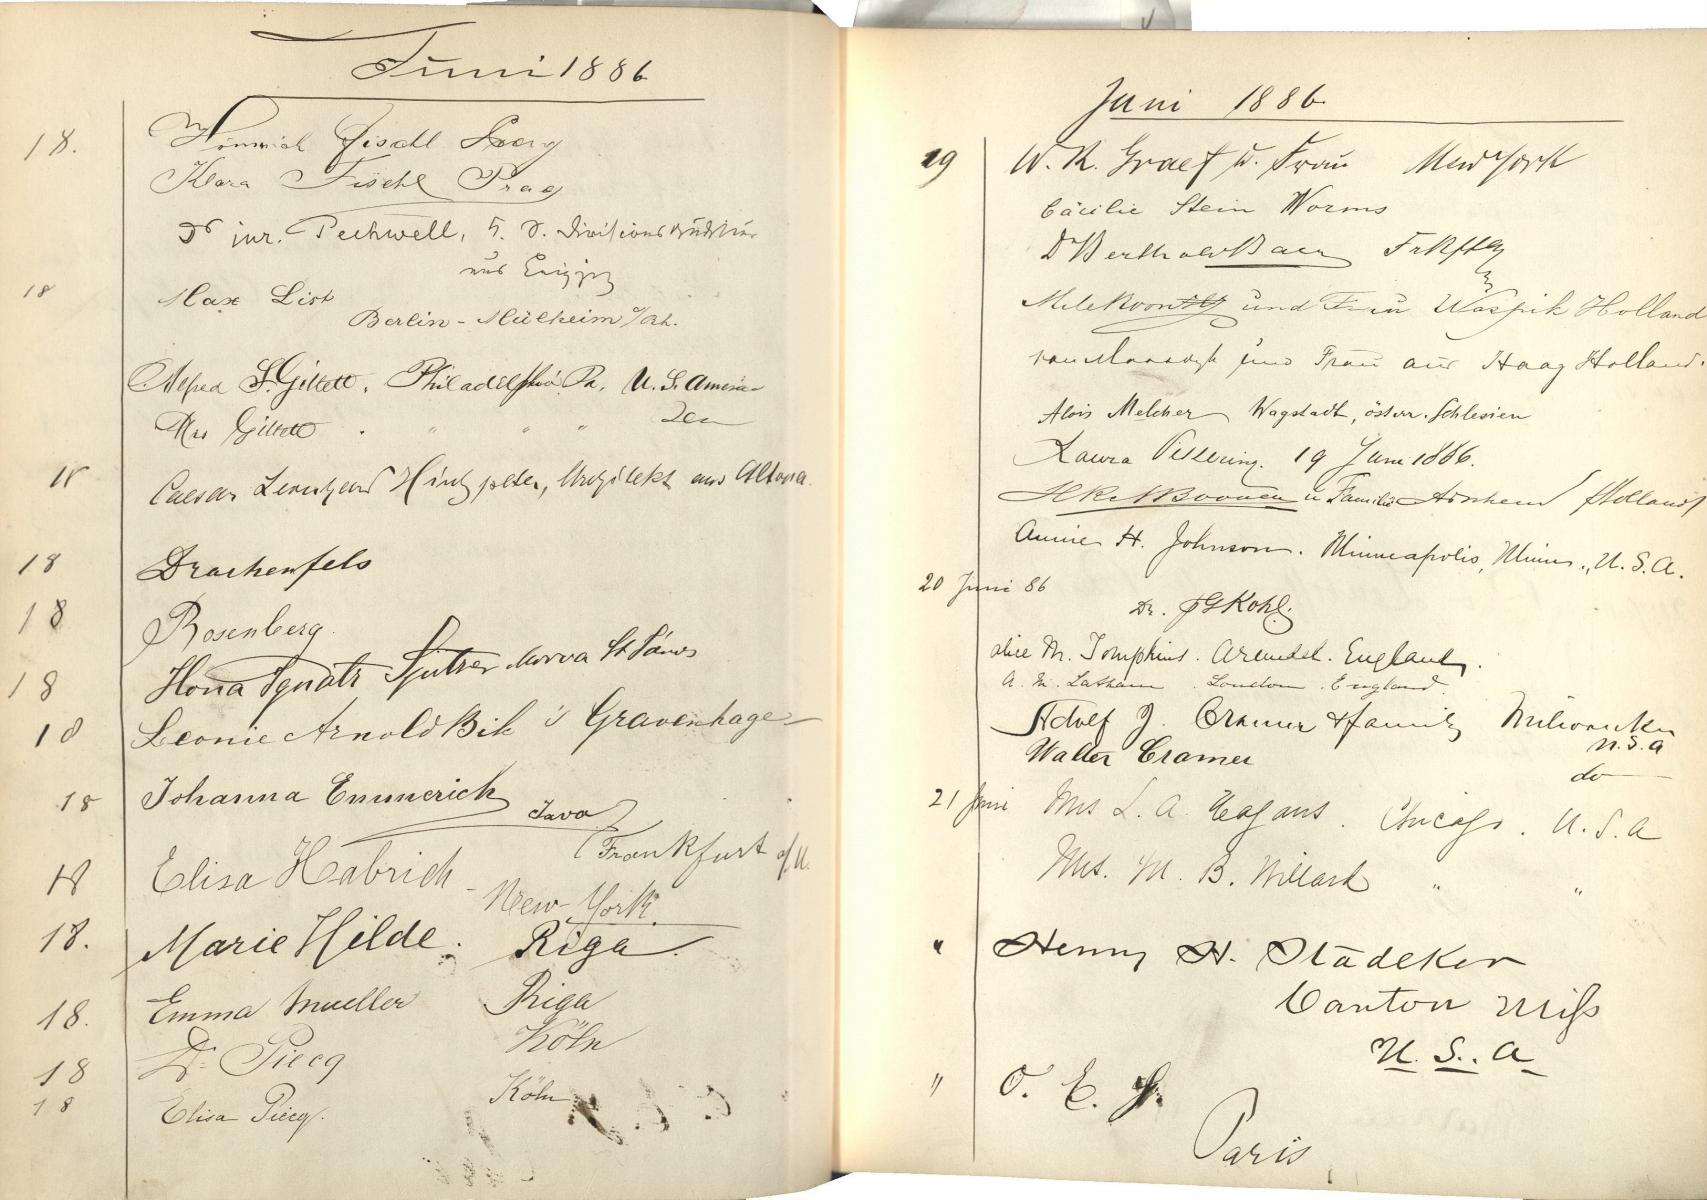 Juni 1886
18. Heinrich Fischl Prag
Klara Fischl Prag
Dr jur. Pechwell,
aus
18 Max List
Berlin - Mülheim a/Rh.
Alfred S. Gillett. Philadelphia Pa. U. S. America
Mrs Gillett " " "
18 Caesar Hintzpeter, Architekt aus Altona
18 Drachenfels
18 Rosenberg
18 Ilona Ignatz
18 Leonie Arnold Bik 's Gravenhage
18 Johanna Emmerich
Java
Frankfurt a/M.
18 Elisa Habrich -
New-York.
18. Marie Hilde. Riga.
18. Emma Mueller Riga
Köln
18 Dr Piecq
18 Elisa Piecq. Köln
Juni 1886.
19 W. K. Graef u. Frau New York
Cäcilie Stein Worms
Dr Berthold Baer Frkft
und Frau Waspik Holland
und Frau aus Haag Holland.
Alois Melcher Wagstadt, österr. Schlesien
Laura 19 Juni 1886.
u Familie Arnhem Holland
Annie H. Johnson. Minneapolis, Minn., U. S. A.
20 Juni 86
Dr. Kohl.
Alice M. Tompkins. Arundel. England.
A. M. Latham. London. England.
Adolf J. Cramer & family Milwaukee
U. S. A
Walter Cramer
do
21 Juni Mrs L. A. Hagans. Chicago. U. S. A
Mrs. M. B. Willard " "
" Henry H. Stadeker
Canton Miss
U. S. A
" O. E. G.
Paris